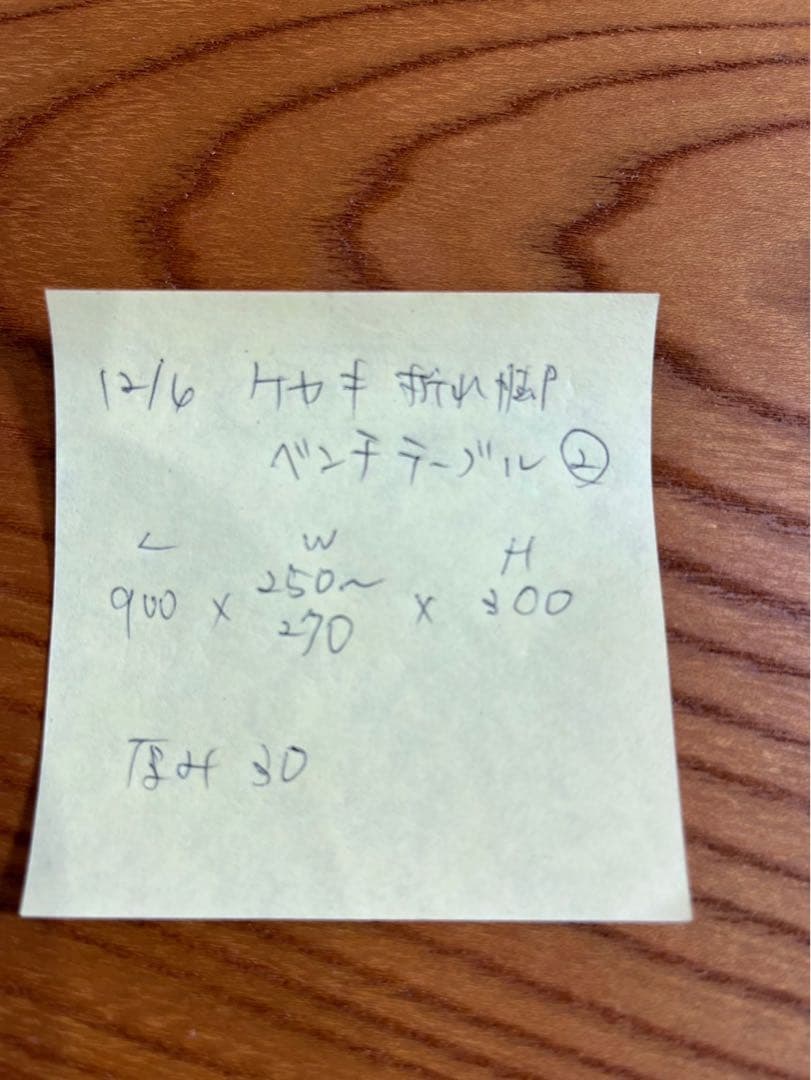 12/6 ケヤキ 折れ脚
ベンチテーブル②
L W H
900 × 250〜270 × 300
厚み 30